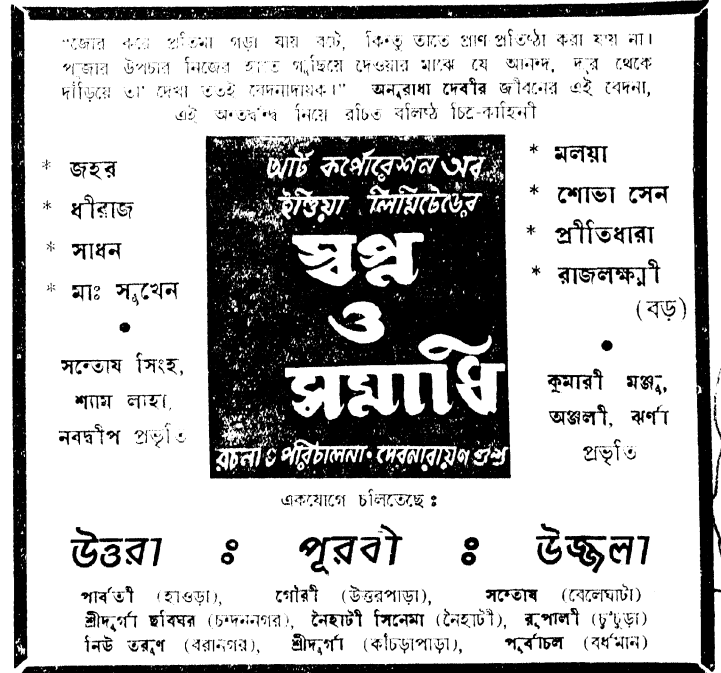 "জোর করে প্রতিমা গড়া যায় বটে, কিন্তু তাতে প্রাণ প্রতিষ্ঠা করা যায় না।
পূজার উপচার নিজের হাতে গুছিয়ে দেওয়ার মাঝে যে আনন্দ, দূর থেকে
দাঁড়িয়ে তা' দেখা ততই বেদনাদায়ক।" অনুরাধা দেবীর জীবনের এই বেদনা,
এই অন্তর্দ্বন্দ্ব নিয়ে রচিত বলিষ্ঠ চিত্র-কাহিনী
* জহর
* ধীরাজ
* সাধন
* মাঃ সুখেন
●
সন্তোষ সিংহ,
শ্যাম লাহা,
নবদ্বীপ প্রভৃতি
আর্ট কর্পোরেশন অব
ইন্ডিয়া লিমিটেডের
স্বপ্ন
ও
সমাধি
রচনা ও পরিচালনা • দেবনারায়ণ গুপ্ত
* মলয়া
* শোভা সেন
* প্রীতিধারা
* রাজলক্ষ্মী
(বড়)
●
কুমারী মঞ্জু,
অঞ্জলী, ঝর্ণা
প্রভৃতি
একযোগে চলিতেছে :
উত্তরা : পূরবী : উজ্জলা
পার্বতী (হাওড়া), গৌরী (উত্তরপাড়া), সন্তোষ (বেলেঘাটা)
শ্রীদুর্গা ছবিঘর (চন্দননগর), নৈহাটী সিনেমা (নৈহাটী), রূপালী (চুঁচুড়া)
নিউ তরুণ (বরানগর), শ্রীদুর্গা (কাঁচড়াপাড়া), পূর্বাচল (বর্ধমান)